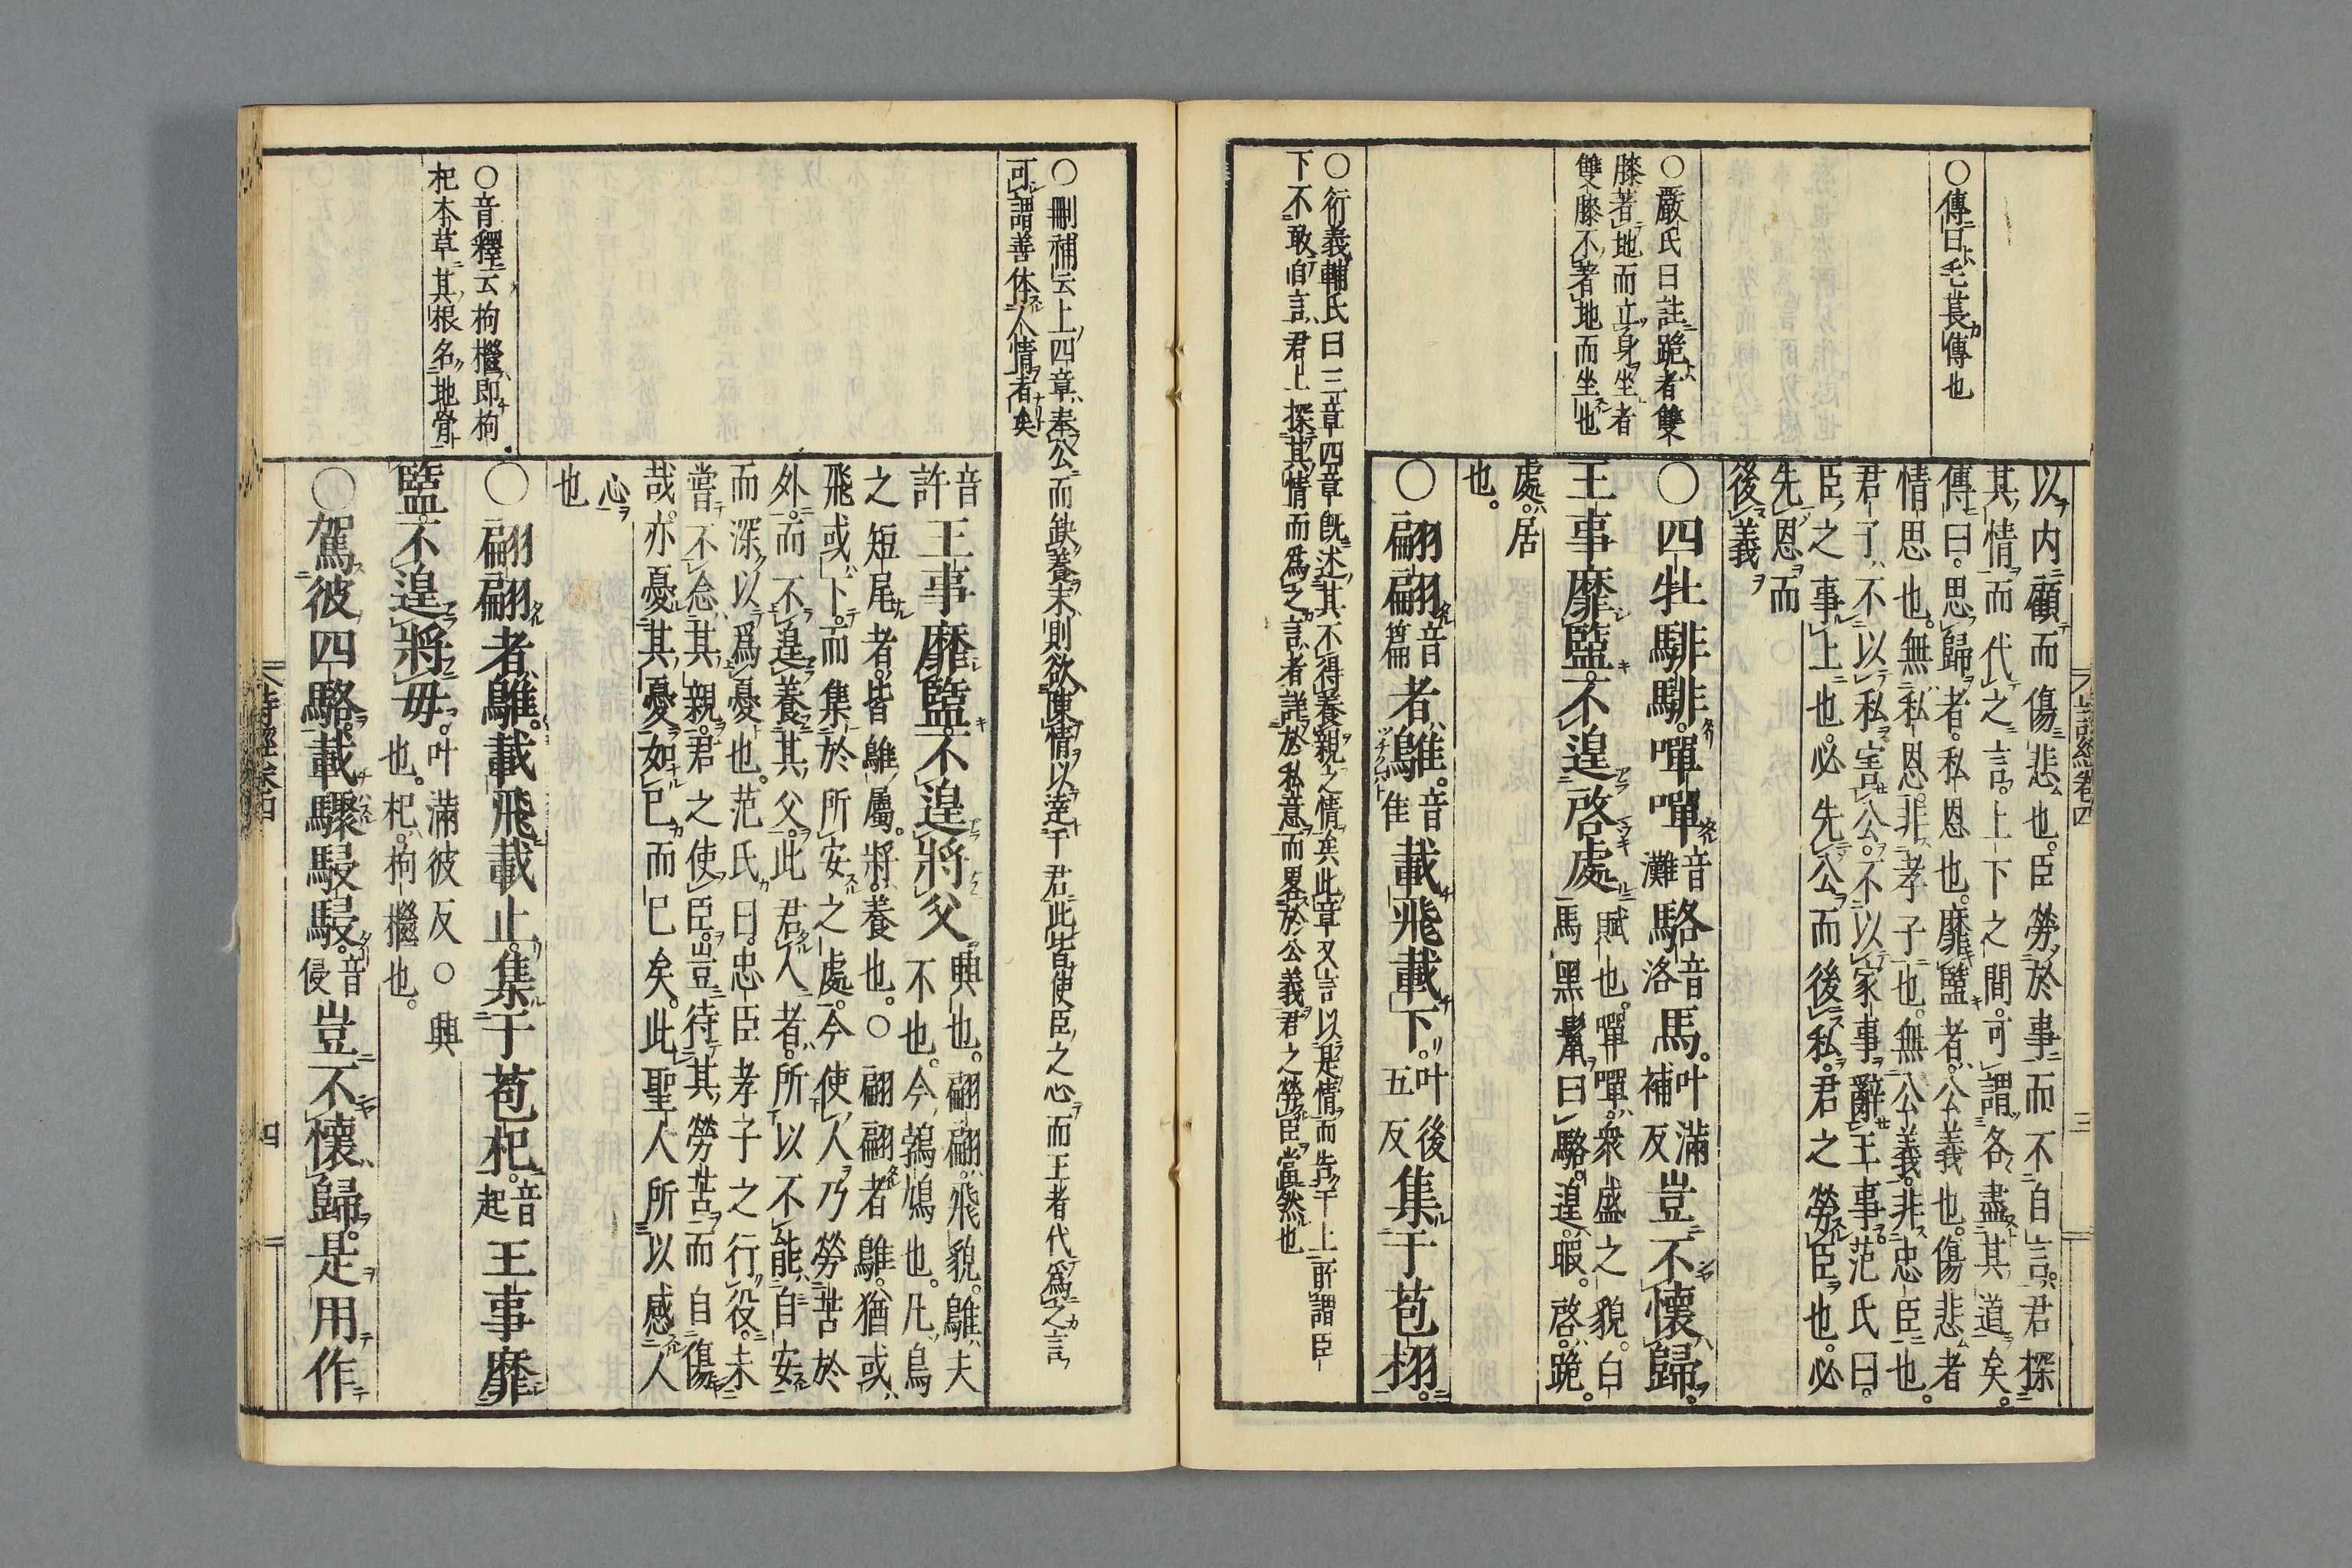 ○傳曰毛萇傳也
○嚴氏曰註跪者雙
膝著地而立身坐者
雙膝不著地而坐也
○衍義輔氏曰三章四章既述其不得養親之情矣此章又言以是情而告于上所謂臣
下不敢自言君上探其情而爲之言者詳於私意而畧於公義君之勞臣當然也
以内顧而傷悲也。臣勞於事而不自言。君探
其情而代之言。上下之間。可謂各盡其道矣。
傳曰。思歸者。私恩也。靡盬者。公義也。傷悲者
情思也。無私恩。非孝子也。無公義。非忠臣也。
君子不以私害公。不以家事辭王事。范氏曰。
臣之事上也。必先公而後私。君之勞臣也。必
先恩而
後義
○四牡騑騑。嘽嘽音灘駱音洛馬。叶滿補反豈不懷歸。
王事靡盬。不遑啓處賦也。嘽嘽。衆盛之貌。白
馬黑鬣曰駱。遑。暇。啓。跪。
處。居
也。
○翩翩音篇者鵻。音隹載飛載下。叶後五反集于苞栩。
○刪補云上四章奉公而缺養未則欲陳情以達于君此皆使臣之心而王者代爲之言
可謂善体人情者矣
音
許王事靡盬。不遑將父興也。翩翩。飛貌。鵻。夫
不也。今鵓鳩也。凡鳥
之短尾者。皆鵻屬。將。養也。○翩翩者鵻。猶或
飛或下。而集於所安之處。今使人乃勞苦於
外。而不遑養其父。此君人者。所以不能自安
而深以爲憂也。范氏曰。忠臣孝子之行役。未
嘗不念其親。君之使臣。豈待其勞苦而自傷
哉。亦憂其憂如已而已矣。此聖人所以感人
心
也
○翩翩者鵻。載飛載止。集于苞杞。音起王事靡
盬不遑將毋。叶滿彼反○興
也。杞。枸檵也。
○駕彼四駱。載驟駸駸。音侵豈不懷歸。是用作
○音釋云枸檵即枸
杞本草其根名地骨
詩經卷四
三
四